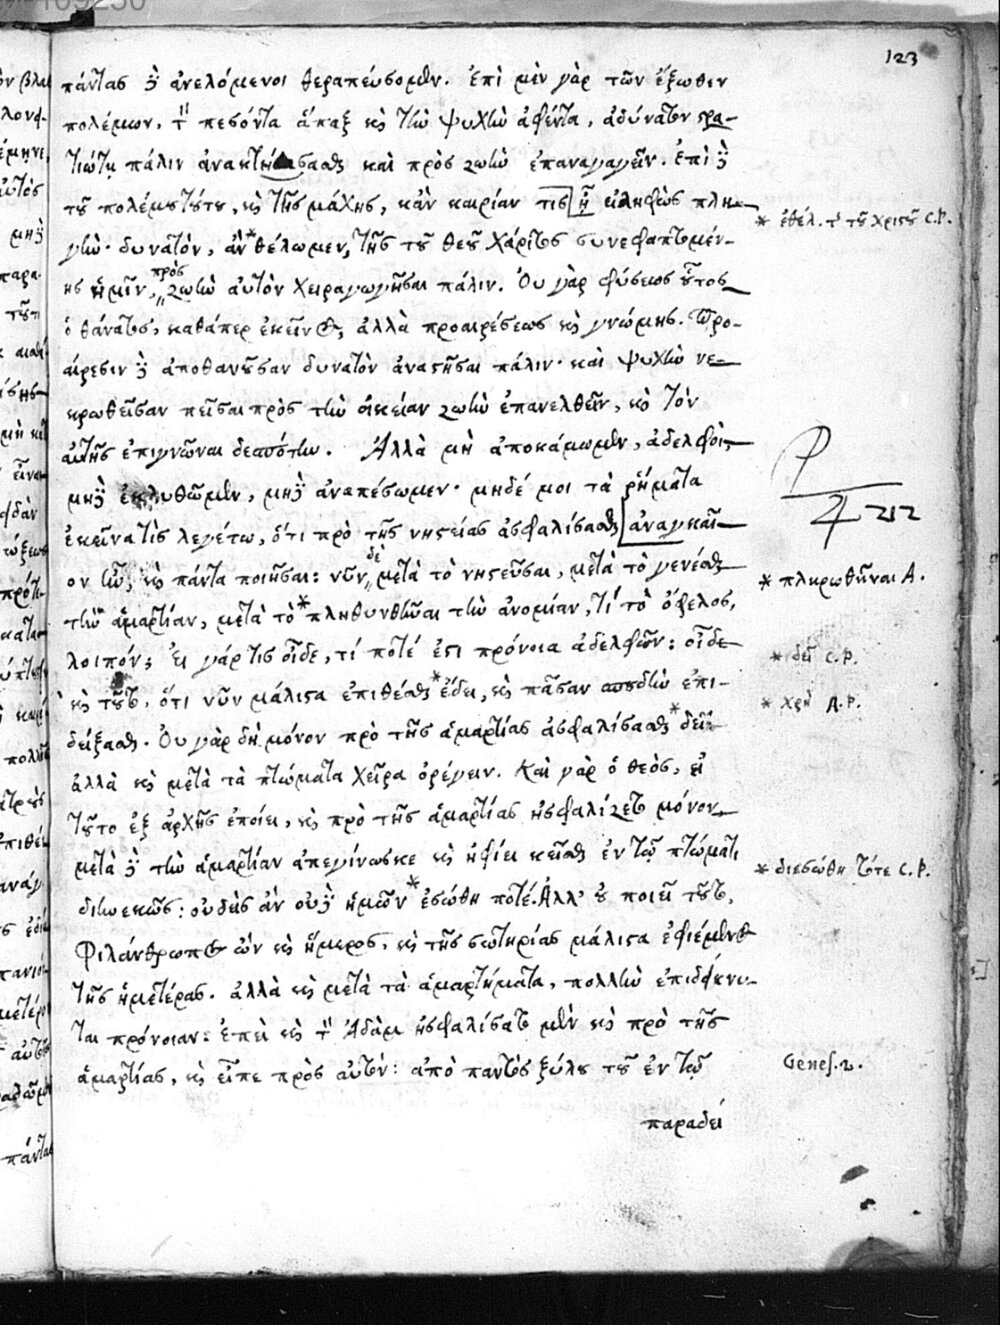 123
πάντας δὲ ἀνελόμενοι θεραπεύσομεν. ἐπὶ μὲν γὰρ τῶν ἔξωθεν
πολέμων, τὸν πεσόντα ἅπαξ καὶ τὴν ψυχὴν ἀφέντα, ἀδύνατον στρα-
τιώτην πάλιν ἀνακτήσασθαι καὶ πρὸς ζωὴν ἐπαναγαγεῖν. ἐπὶ δὲ
τοῦ πολέμου τούτου, καὶ τῆς μάχης, κἂν καιρίαν τις ᾖ εἰληφὼς πλη-
γὴν· δυνατὸν, ἂν * θέλωμεν, τῆς τοῦ θεοῦ χάριτος συνεφαπτομέν-
ης ἡμῖν, πρὸς ζωὴν αὐτὸν χειραγωγῆσαι πάλιν. Οὐ γὰρ φύσεως οὗτος
ὁ θάνατος, καθάπερ ἐκεῖνος, ἀλλὰ προαιρέσεως καὶ γνώμης. Προ-
αίρεσιν δὲ ἀποθανοῦσαν δυνατὸν ἀναστῆσαι πάλιν· καὶ ψυχὴν νε-
κρωθεῖσαν πεῖσαι πρὸς τὴν οἰκείαν ζωὴν ἐπανελθεῖν, καὶ τὸν
αὐτῆς ἐπιγνῶναι δεσπότην. Ἀλλὰ μὴ ἀποκάμωμεν, ἀδελφοὶ,
μηδὲ ἐκλυθῶμεν, μηδὲ ἀναπέσωμεν· μηδέ μοι τὰ ῥήματα
ἐκεῖνα τὶς λεγέτω, ὅτι πρὸ τῆς νηστείας ἀσφαλίσασθαι ἀναγκαῖ-
ον ἦν, καὶ πάντα ποιῆσαι: νῦν δὲ μετὰ τὸ νηστεῦσαι, μετὰ τὸ γενέσθαι
τὴν ἁμαρτίαν, μετὰ τὸ * πληθυνθῆναι τὴν ἀνομίαν, τί τὸ ὄφελος,
λοιπόν; Εἰ γάρ τις οἶδε, τί ποτέ ἐστι πρόνοια ἀδελφῶν: οἶδε
καὶ τοῦτο, ὅτι νῦν μάλιστα ἐπιθέσθαι * ἔδει, καὶ πᾶσαν σπουδὴν ἐπι-
δείξασθαι. Οὐ γὰρ δὴ μόνον πρὸ τῆς ἁμαρτίας ἀσφαλίσασθαι * δεῖ:
ἀλλὰ καὶ μετὰ τὰ πτώματα χεῖρα ὀρέγειν. Καὶ γὰρ ὁ θεὸς, εἰ
τοῦτο ἐξ ἀρχῆς ἐποίει, καὶ πρὸ τῆς ἁμαρτίας ἠσφαλίζετο μόνον,
μετὰ δὲ τὴν ἁμαρτίαν ἀπεγίνωσκε καὶ ἠφίει κεῖσθαι ἐν τῷ πτώματι
διηνεκῶς: οὐδεὶς ἂν οὐδὲ ἡμῶν * ἐσώθη ποτέ. Ἀλλ' οὐ ποιεῖ τοῦτο,
Φιλάνθρωπος ὢν καὶ ἥμερος, καὶ τῆς σωτηρίας μάλιστα ἐφιέμενος
τῆς ἡμετέρας. ἀλλὰ καὶ μετὰ τὰ ἁμαρτήματα, πολλὴν ἐπιδείκνυ-
ται πρόνοιαν: ἐπεὶ καὶ τὸν Ἀδὰμ ἠσφαλίσατο μὲν καὶ πρὸ τῆς
ἁμαρτίας, καὶ εἶπε πρὸς αὐτόν: ἀπὸ παντὸς ξύλου τοῦ ἐν τῷ
παραδεί
* ἐθέλ. τ τοῦ Χριστοῦ C.P.
P
4 212
* πληρωθῆναι A.
* δεῖ C.P.
* χρὴ A.P.
* διεσώθη τότε C.P.
Genes. 2.